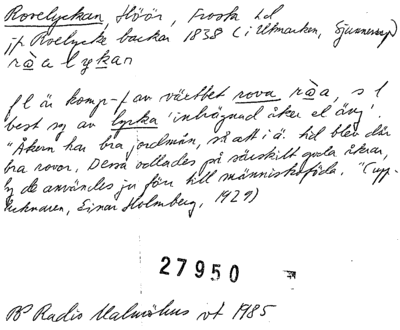 Rovelyckan, Höör, Frosta hd
jf Roelycke backar 1838 (i utmarken, Sjunnerup)
ròalykan
fl är komp-f av växtbet rova ròa, s l
best sg av lycka 'inhägnad åker el äng'.
"Åkern har bra jordmån, så att i ä. tid blev där
bra rovor. Dessa odlades på särskilt goda åkrar,
ty de användes ju förr till människoföda." (upp-
tecknaren, Einar Holmberg, 1929)
27950
Radio Malmöhus vt 1985